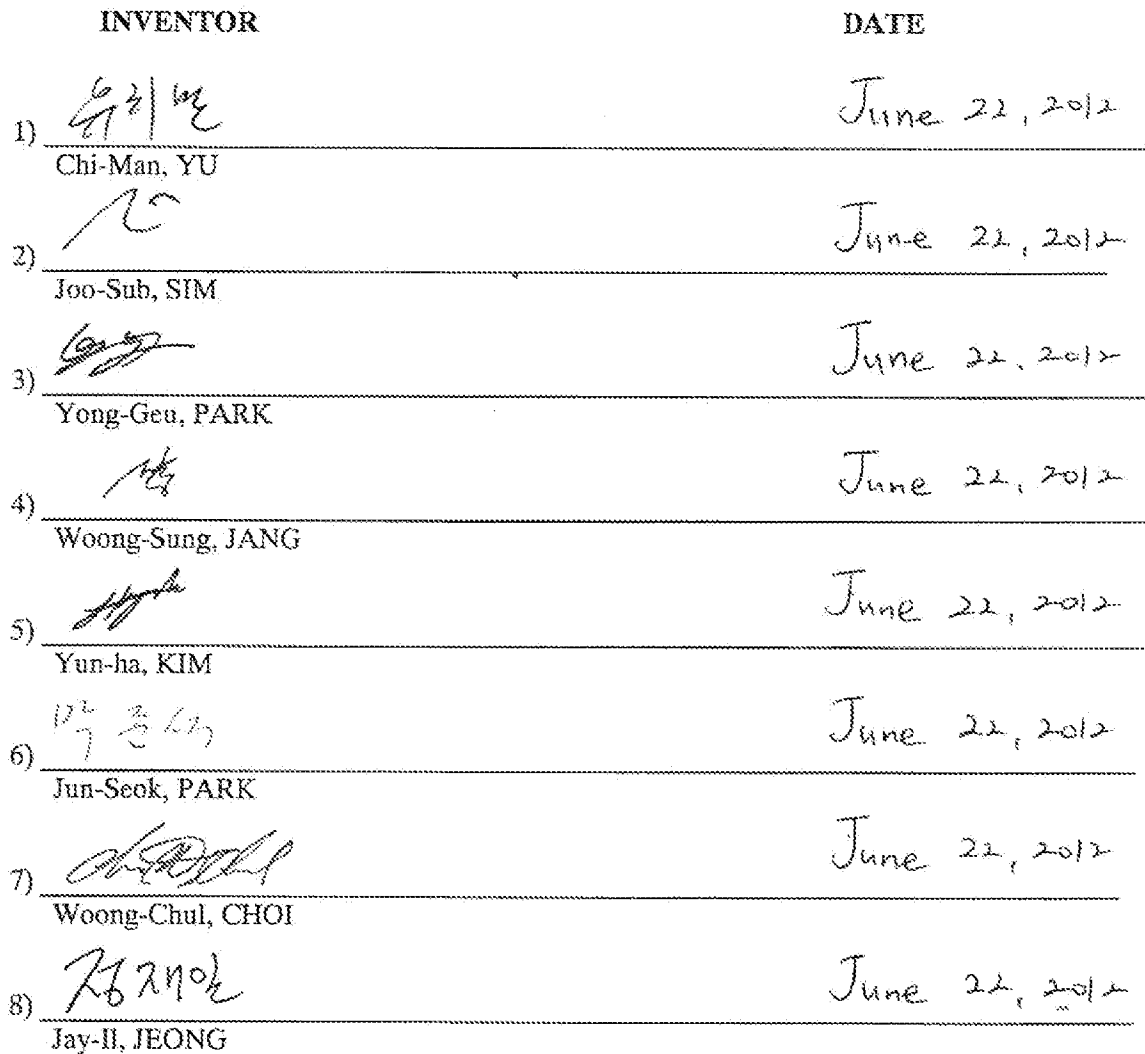 INVENTOR DATE
1) 유치만 June 22, 2012
Chi-Man, YU
2) June 22, 2012
Joo-Sub, SIM
3) June 22, 2012
Yong-Geu, PARK
4) June 22, 2012
Woong-Sung, JANG
5) June 22, 2012
Yun-ha, KIM
6) 박준석 June 22, 2012
Jun-Seok, PARK
7) June 22, 2012
Woong-Chul, CHOI
8) 정재일 June 22, 2012
Jay-Il, JEONG